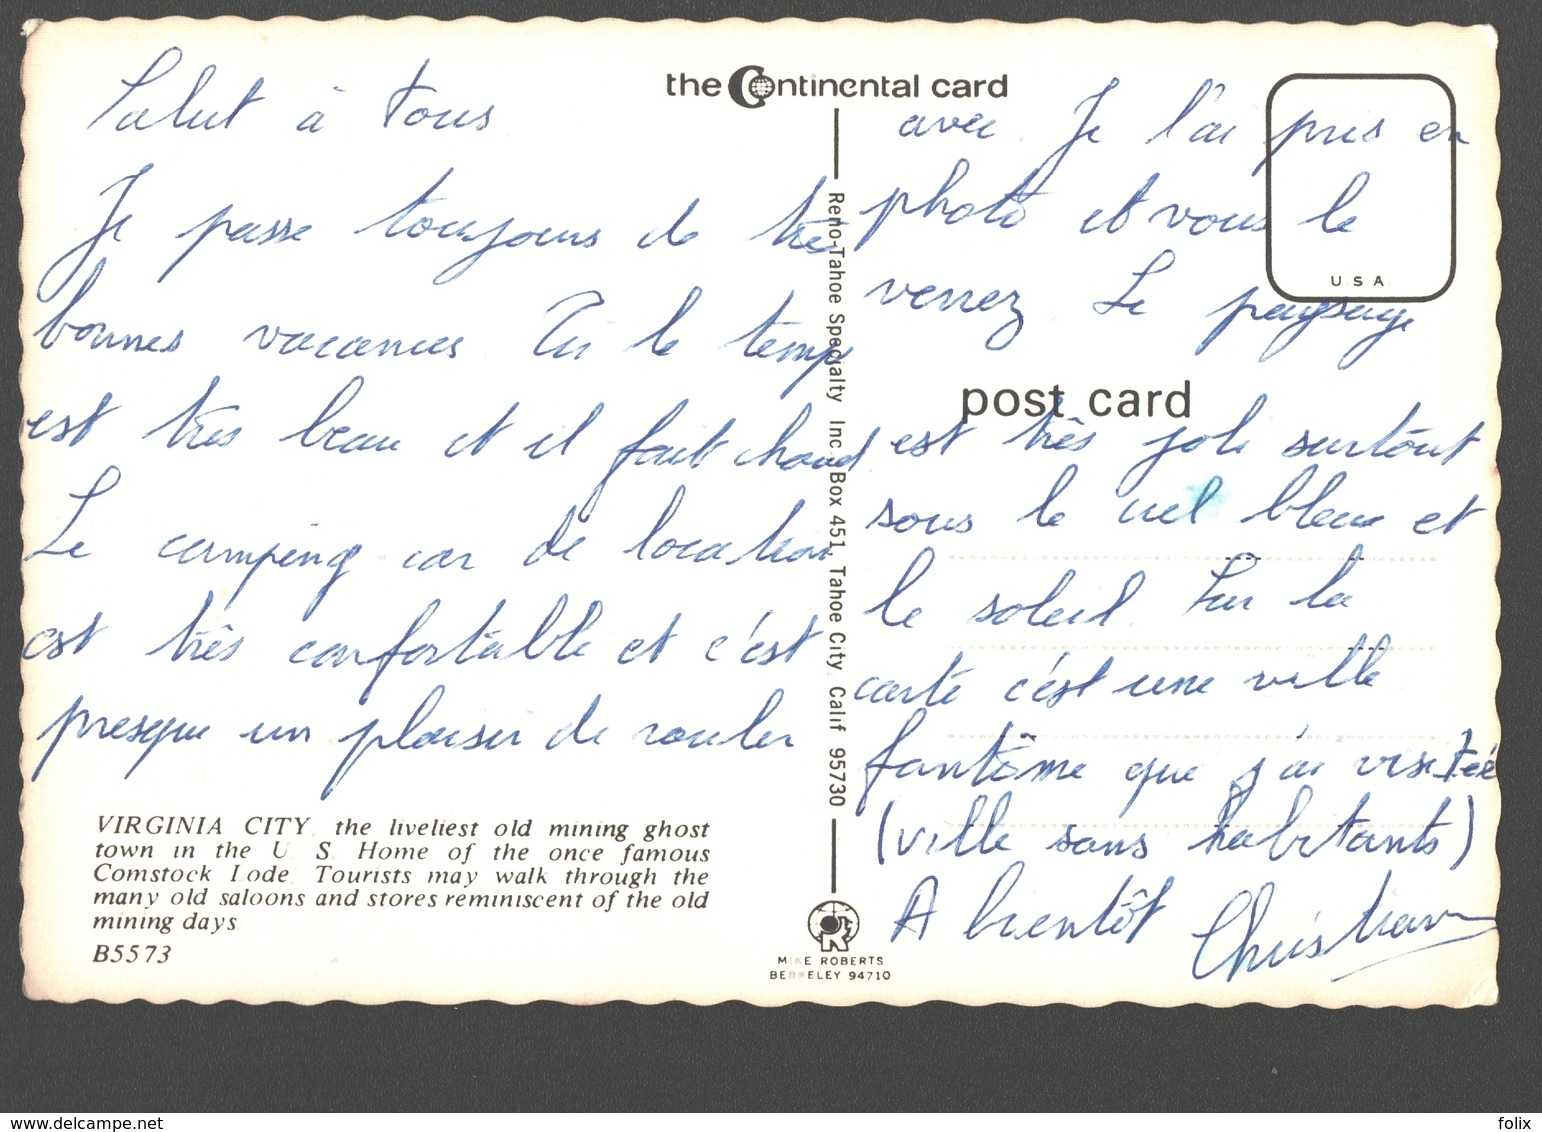 Salut à tous
Je passe toujours de très
bonnes vacances Ici le temps
est très beau et il fait chaud
Le camping car de location
est très confortable et c'est
presque un plaisir de rouler
VIRGINIA CITY the liveliest old mining ghost
town in the U S. Home of the once famous
Comstock Lode. Tourists may walk through the
many old saloons and stores reminiscent of the old
mining days
B5573
the Continental card
Reno-Tahoe Specialty Inc. Box 451, Tahoe City Calif 95730
MIKE ROBERTS
BERKELEY 94710
USA
avec Je l'ai pris en
photo et vous le
verrez Le paysage
post card
est très joli surtout
sous le ciel bleu et
le soleil. Sur la
carte c'est une ville
fantôme que j'ai visitée
(ville sans habitants)
A bientôt Christian
folix